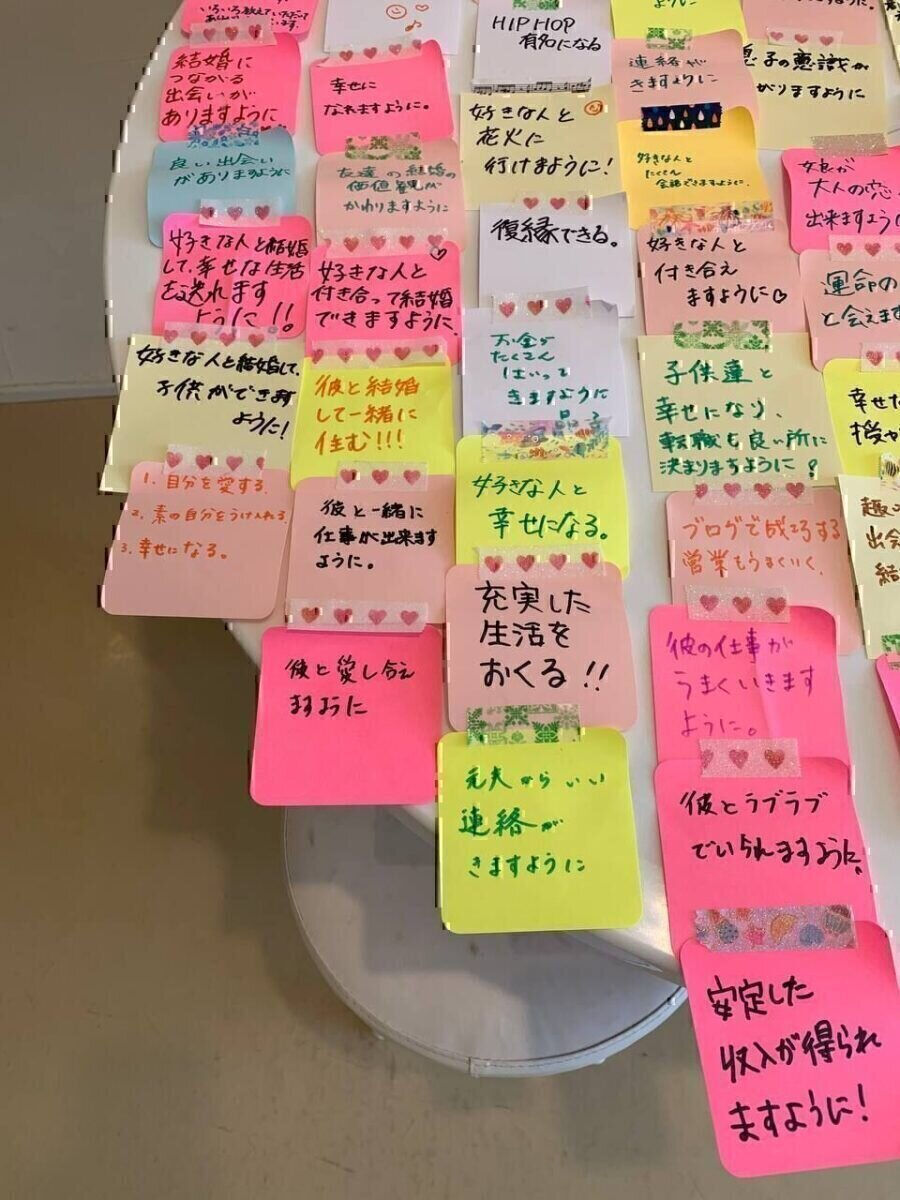 ありますように
HIP HOP
有名になる
ように
結婚に
つながる
出会いが
ありますように
幸せに
なれますように。
好きな人と
花火に
行けますように!
連絡が
きますように
息子の意識が
がりますように
良い出会い
がありますように
友達の結婚の
価値観が
かわりますように
好きな人と
たくさん
会話できますように。
娘が
大人の恋
出来ますように
好きな人と結婚
して、幸せな生活
を送れます
ように!!
好きな人と
付き合って結婚
できますように。
復縁できる。
好きな人と
付き合え
ますように♡
運命の
と会えます
好きな人と結婚して、
子供ができます
ように!
彼と結婚
して一緒に
住む!!!
お金が
たくさん
はいって
きますように
子供達と
幸せになり、
転職も良い所に
決まりますように?
幸せな
授か
1. 自分を愛する。
2. 素の自分をうけ入れる。
3. 幸せになる。
彼と一緒に
仕事が出来ます
ように。
好きな人と
幸せになる。
ブログで成功する
営業もうまくいく。
趣
出会
結
彼と愛し合え
ますように
充実した
生活を
おくる!!
彼の仕事が
うまくいきます
ように。
元夫からいい
連絡が
きますように
彼とラブラブ
でいられますように。
安定した
収入が得られ
ますように!